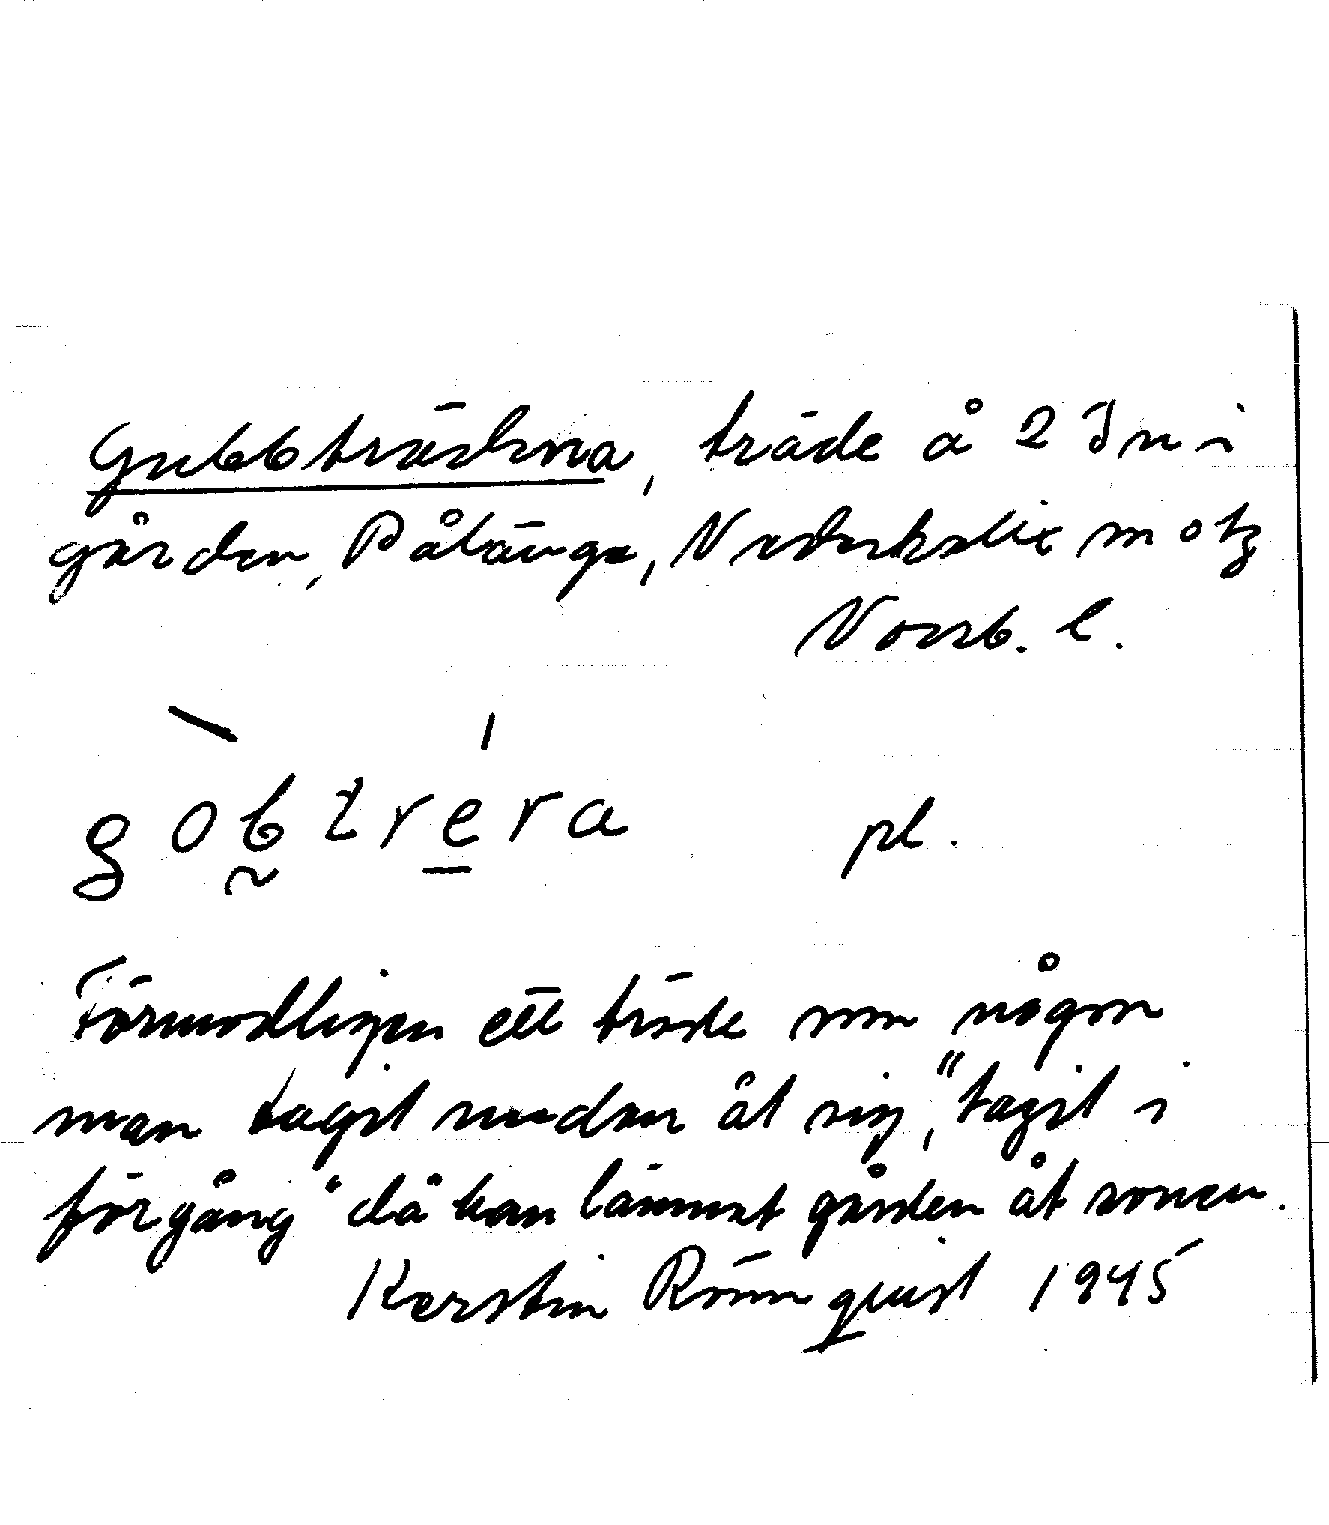 Gubbträdena, träde å 2 Jn i
gården, Pålänge, Nederkalix sn o tg
Norrb. l.
gobtrera pl.
Förmodligen ett träde som någon
man tagit undan åt sig, "tagit i
förgång" då han lämnat gården åt sonen.
Kerstin Rönnqvist 1945